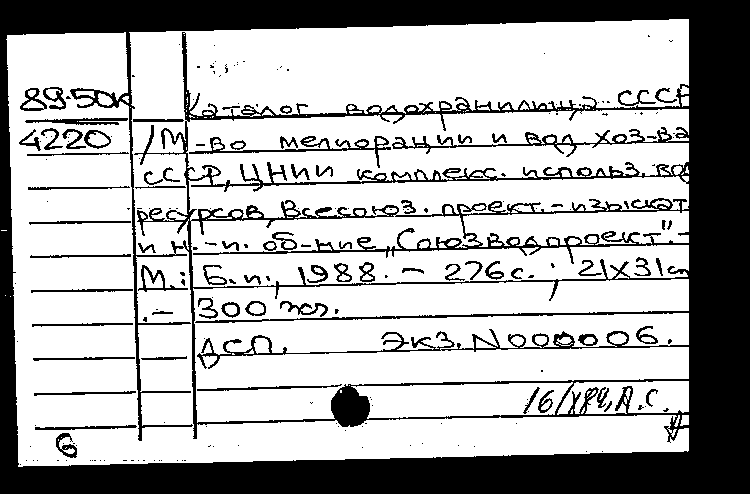 89-50к Каталог водохранилища СССР
4220 /М-во мелиорации и вод. хоз-ва
СССР, ЦНИИ комплекс. использ. вод
ресурсов, Всесоюз. проект.-изыскат
и н.-и. об-ние „Союзводопроект".-
М.: Б.и., 1988. - 276с. ; 21х31см
.- 300 экз.
ДСП. Экз. N000006.
16/X89, А.С.
6